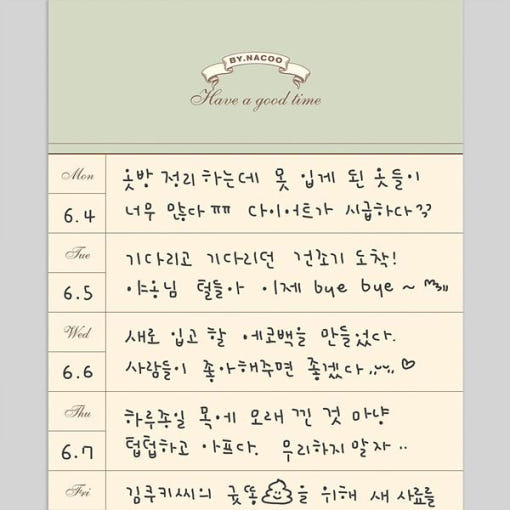 BY.NACOO
Have a good time
Mon
옷방 정리하는데 못 입게 된 옷들이
6.4
너무 많다ㅠㅠ 다이어트가 시급하다??
Tue
기다리고 기다리던 건조기 도착!
6.5
야옹님 털들아 이제 bye bye~
Wed
새로 입고할 에코백을 만들었다.
6.6
사람들이 좋아해주면 좋겠다 ♡
Thu
하루종일 목에 모래 낀 것 마냥
6.7
텁텁하고 아프다. 무리하지말자..
Fri
김쿠키씨의 굿똥💩을 위해 새 사료를